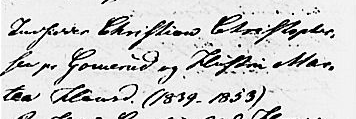 Indsidder Christian Christopher-
sen pr Gomerud og Hustru Mar-
tea Hansd. (1839-1853)